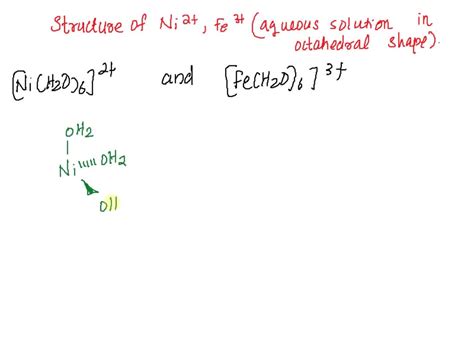 Structure of Ni²⁺, Fe³⁺ (aqueous solution in
octahedral shape).
[Ni(H2O)6]²⁺ and [Fe(H2O)6]³⁺
OH2
Ni OH2